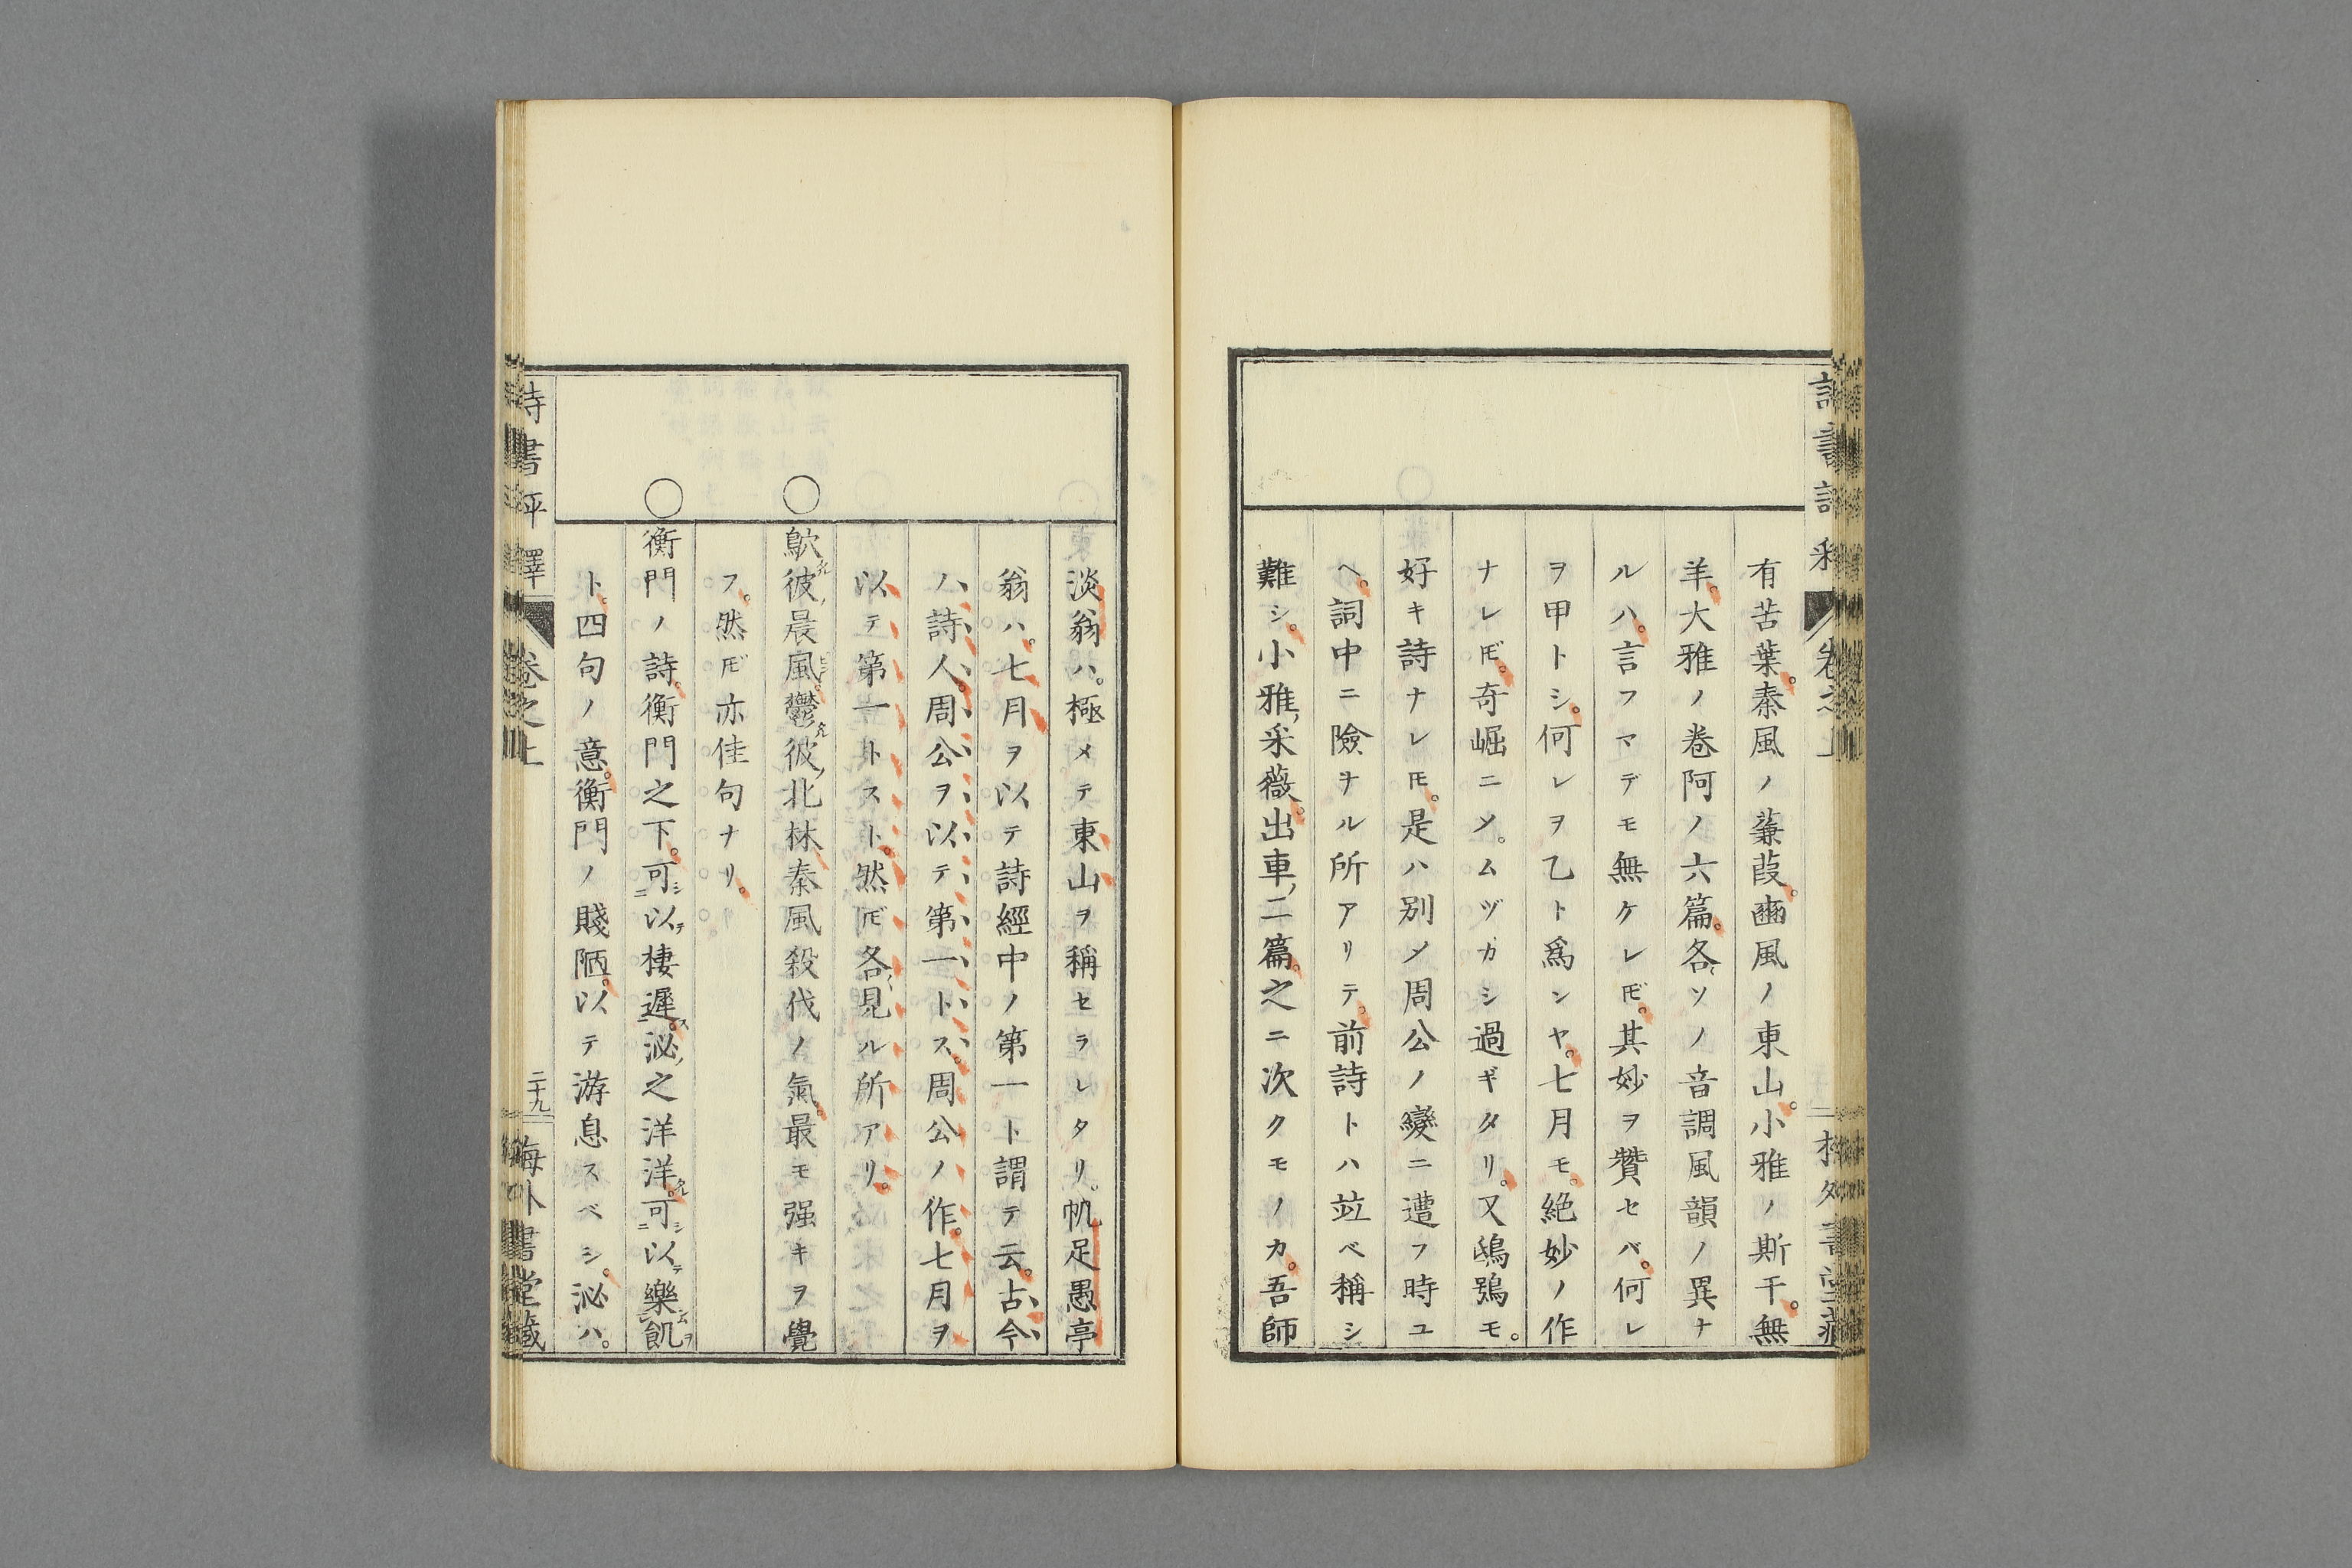 有苦葉。秦風ノ蒹葭。豳風ノ東山。小雅ノ斯干。無
羊。大雅ノ卷阿ノ六篇。各〻ソノ音調風韻ノ異ナ
ルハ。言フマデモ無ケレ𪜈。其妙ヲ贊セバ。何レ
ヲ甲トシ。何レヲ乙ト爲ンヤ。七月モ。絶妙ノ作
ナレ𪜈。奇崛ニ〆。ムヅカシ過ギタリ。又鴟鴞モ。
好キ詩ナレ𪜈。是ハ別〆周公ノ變ニ遭フ時ユ
ヘ。詞中ニ險ナル所アリテ。前詩トハ竝ベ稱シ
難シ。小雅、采薇。出車、二篇。之ニ次クモノカ。吾師
淡翁ハ。極メテ東山ヲ稱セラレタリ。帆足愚亭
翁ハ。七月ヲ以テ詩經中ノ第一ト謂テ云。古今
ハ、詩人。周公ヲ以テ第一トス。周公ノ作。七月ヲ
以テ第一トスト。然𪜈各〻見ル所アリ。
○鴥彼、晨風。鬱彼、北林。秦風殺伐ノ氣。最モ强キヲ覺
フ。然𪜈亦佳句ナリ。
○衡門ノ詩。衡門之下。可シ二以テ棲遲ス一。泌、之洋洋タル。可シ二以テ樂ム一飢ヲ
ト。四句ノ意。衡門ノ賤陋。以テ游息スベシ。泌ハ。
詩書評釋 卷之上 二十九 梅外書堂藏